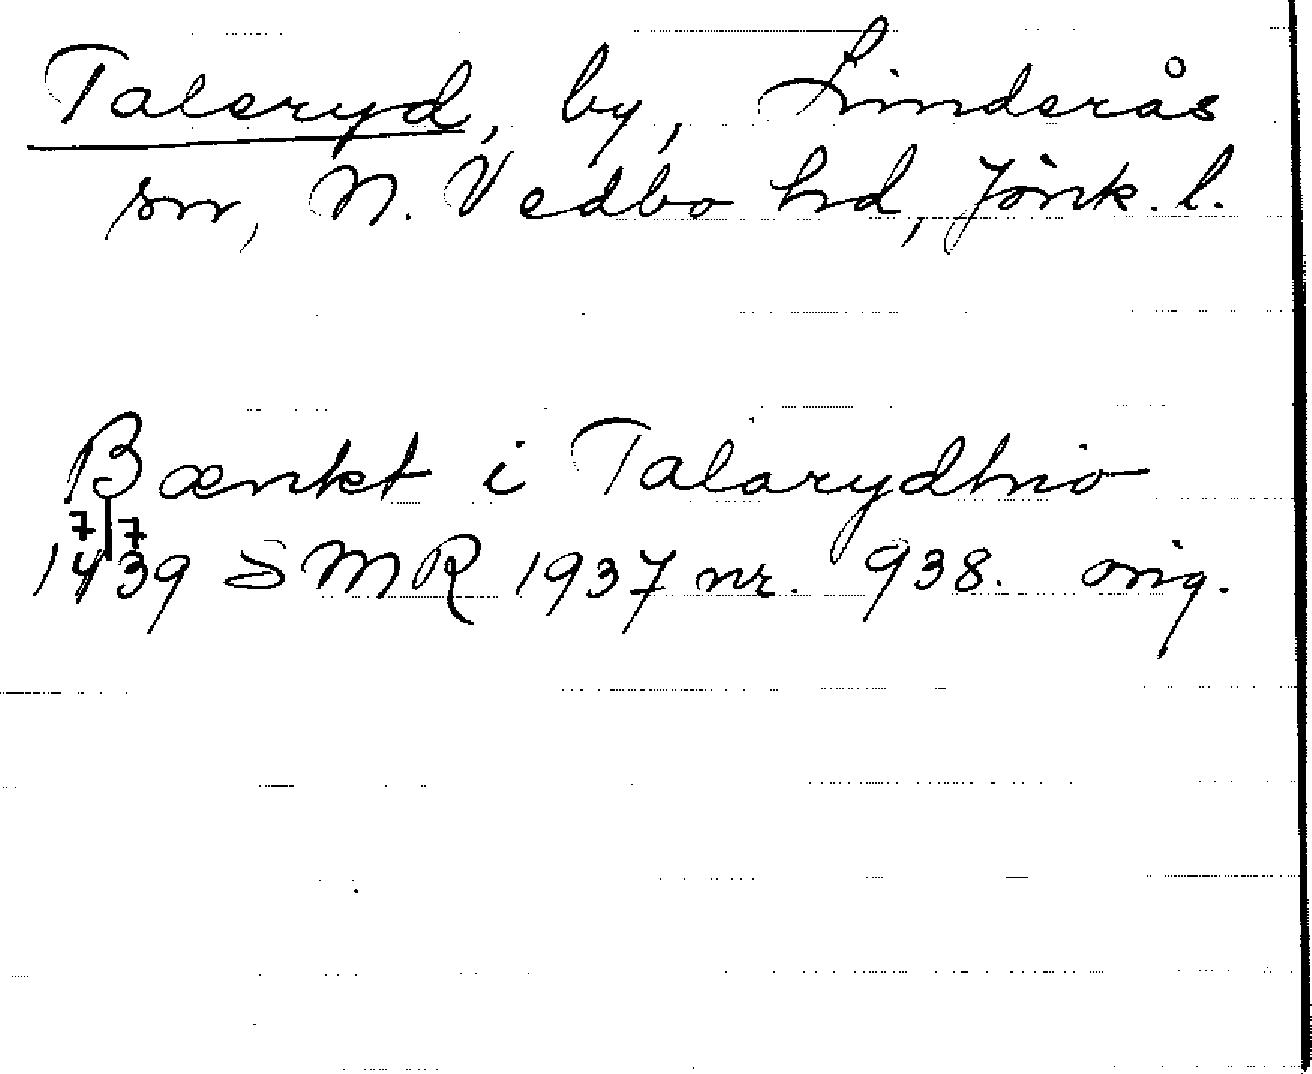 Taleryd, by, Linderås
sn, N. Vedbo hd, Jönk. l.
Bænkt i Talarydhio
7/7
1439 SMR 1937 nr. 938. orig.